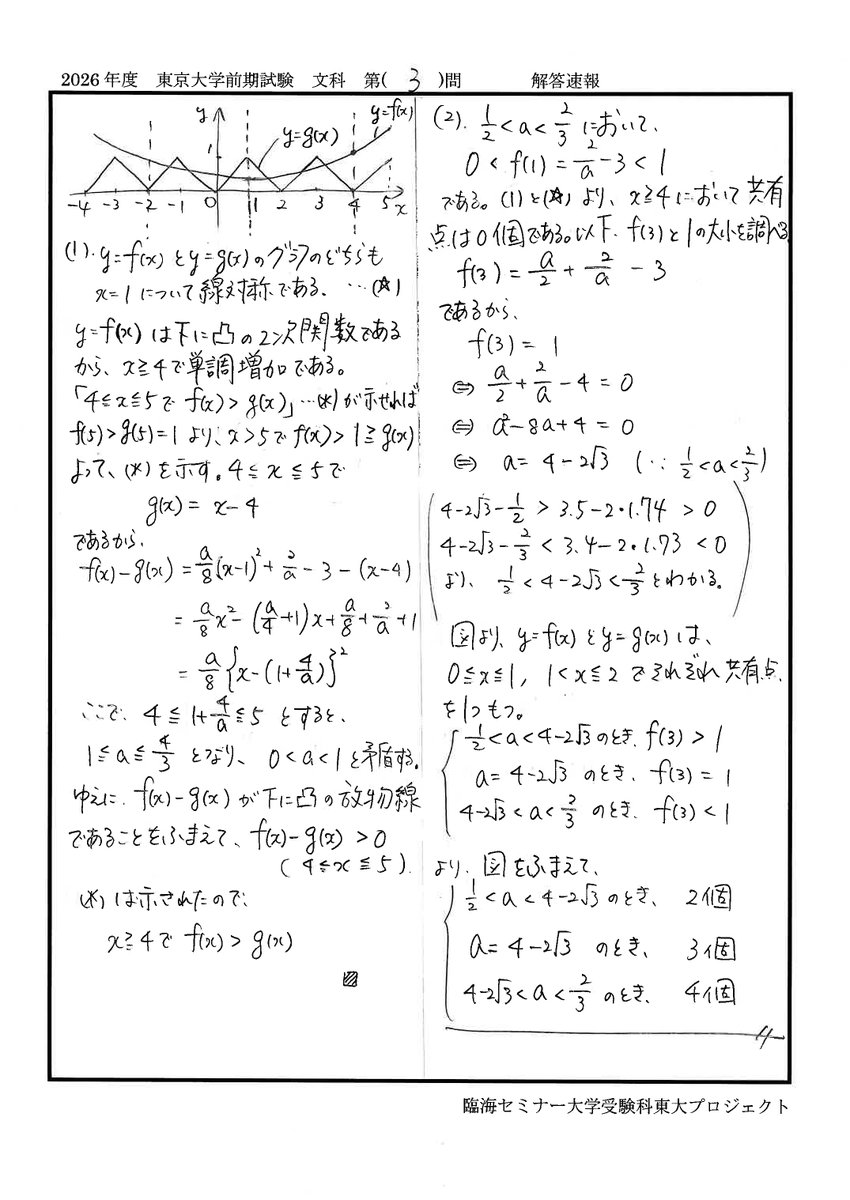 2026年度 東京大学前期試験 文科 第( 3 )問 解答速報
y
y=f(x)
y=g(x)
1
-4 -3 -2 -1 0 1 2 3 4 5 x
(1). y=f(x)とy=g(x)のグラフのどちらも
x=1について線対称である. …(☆)
y=f(x)は下に凸の2次関数である
から、x≧4で単調増加である。
「4≦x≦5でf(x)>g(x)」…(*)が示せれば
f(5)>g(5)=1より、x>5でf(x)>1≧g(x)
よって、(*)を示す。4≦x≦5で
g(x)= x-4
であるから、
f(x)-g(x) = a/8(x-1)²+2/a-3-(x-4)
= a/8x²-(a/4+1)x+a/8+2/a+1
= a/8{x-(1+4/a)}²
ここで、4≦1+4/a≦5とすると、
1≦a≦4/3となり、0<a<1と矛盾する。
ゆえに、f(x)-g(x)が下に凸の放物線
であることをふまえて、f(x)-g(x)>0
(4≦x≦5).
(*)は示されたので、
x≧4でf(x)>g(x)
▨
(2). 1/2<a<2/3において、
0<f(1)=2/a-3<1
である。(1)と(☆)より、x≧4において共有
点は0個である。以下、f(3)と1の大小を調べる
f(3)=a/2+2/a-3
であるから、
f(3)=1
⇔ a/2+2/a-4=0
⇔ a²-8a+4=0
⇔ a=4-2√3 (∵ 1/2<a<2/3)
4-2√3-1/2 > 3.5-2・1.74 > 0
4-2√3-2/3 < 3.4-2・1.73 < 0
より、1/2<4-2√3<2/3とわかる。
図より、y=f(x)とy=g(x)は、
0≦x≦1, 1<x≦2でそれぞれ共有点
を1つもつ。
1/2<a<4-2√3のとき、f(3)>1
a=4-2√3のとき、f(3)=1
4-2√3<a<2/3のとき、f(3)<1
より、図をふまえて、
1/2<a<4-2√3のとき、2個
a=4-2√3のとき、3個
4-2√3<a<2/3のとき、4個
臨海セミナー大学受験科東大プロジェクト